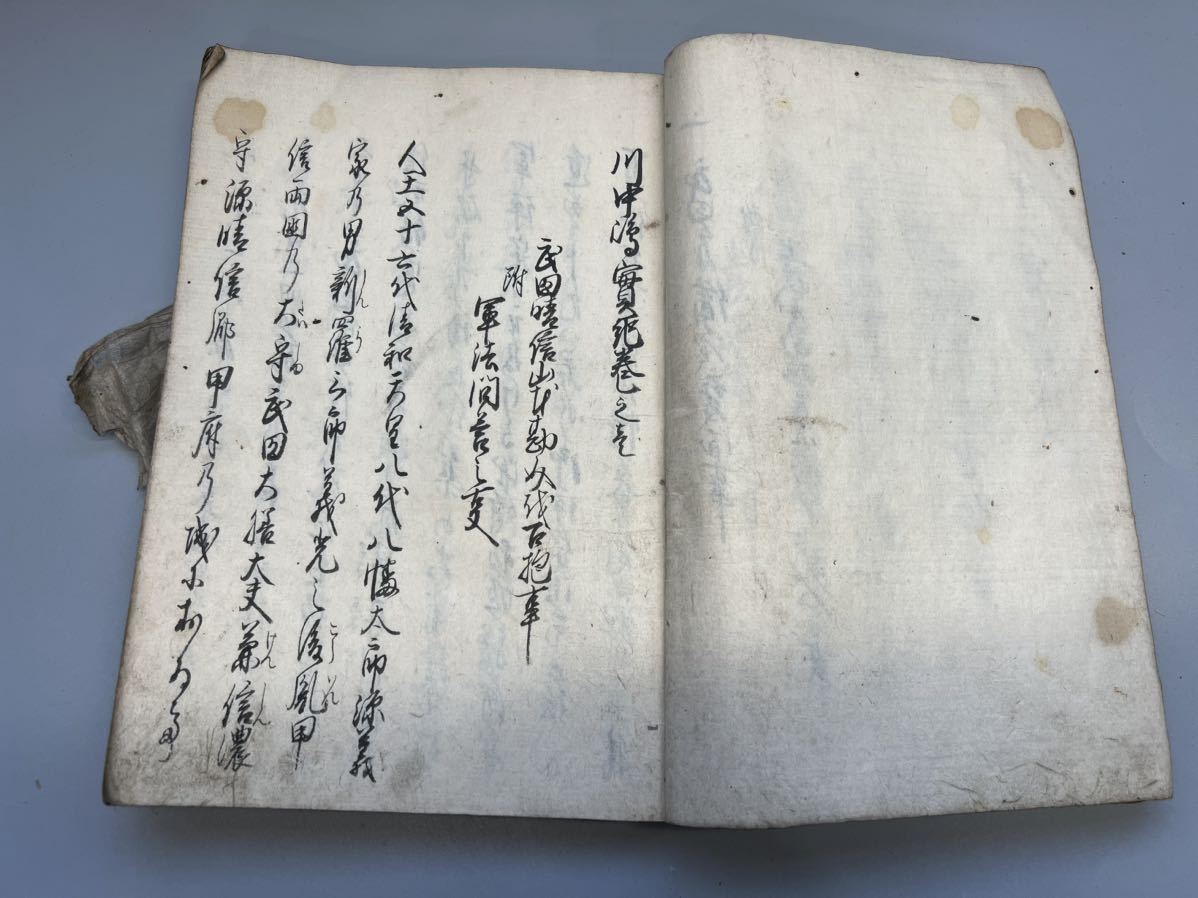 川中嶋實記巻之壱
武田晴信山本勘介越召抱事
附
軍法問答之事
人王五十六代清和天皇八代八幡太郎源義
家乃男新羅三郎義光之後胤甲
信両國乃大守武田大膳大夫兼信濃
守源晴信府甲府乃城におゐて